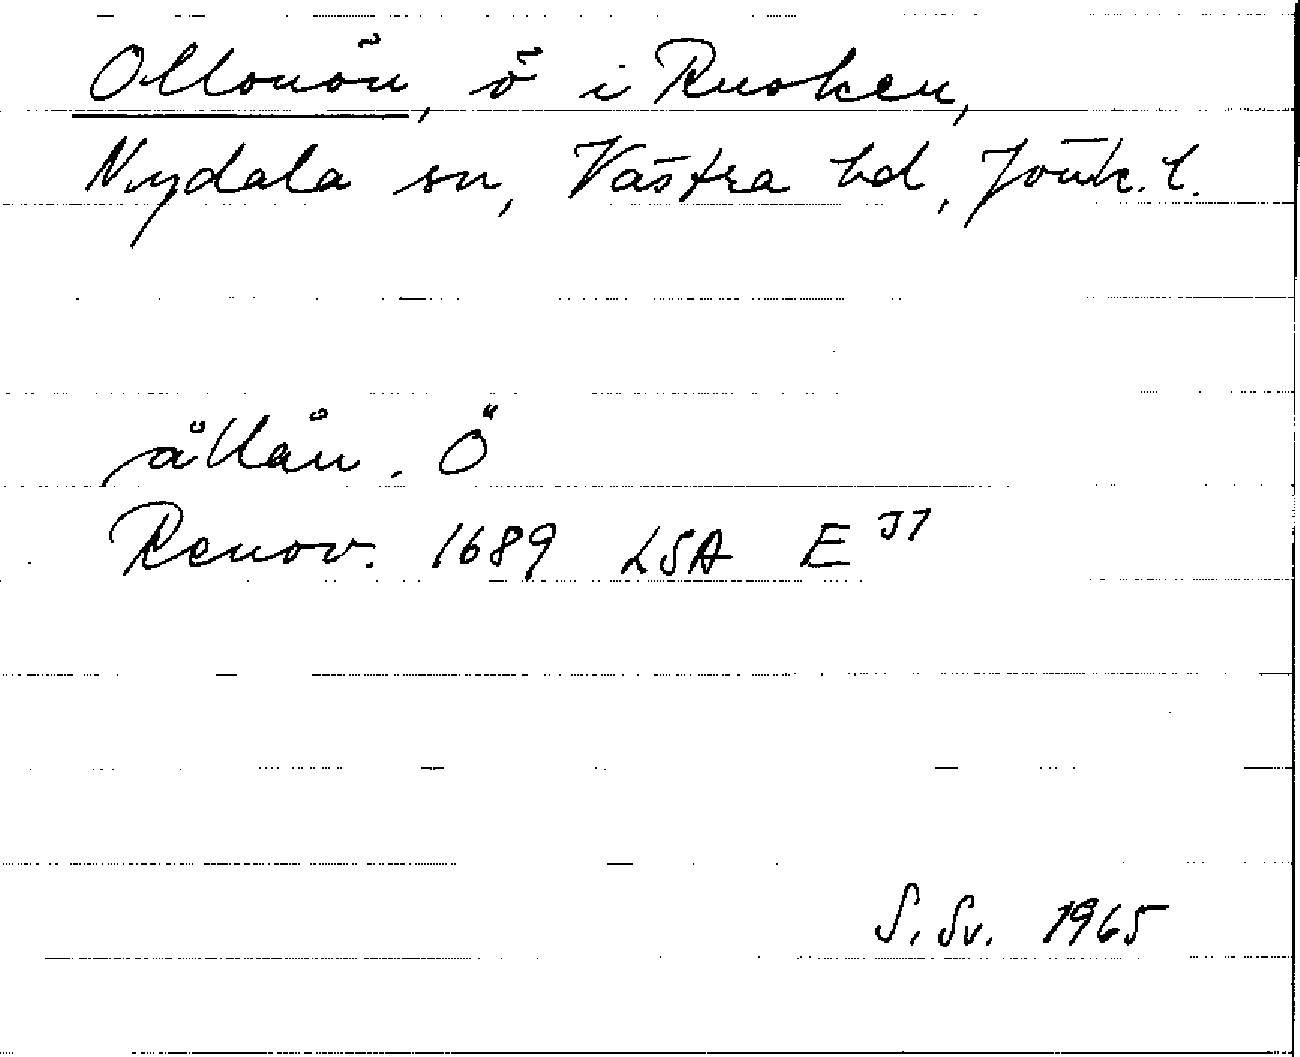 Ollonön, ö i Rusken,
Nydala sn, Västra hd, Jönk. l.
ållån. Ö
Renov. 1689 LSA E 37
S. Sv. 1965